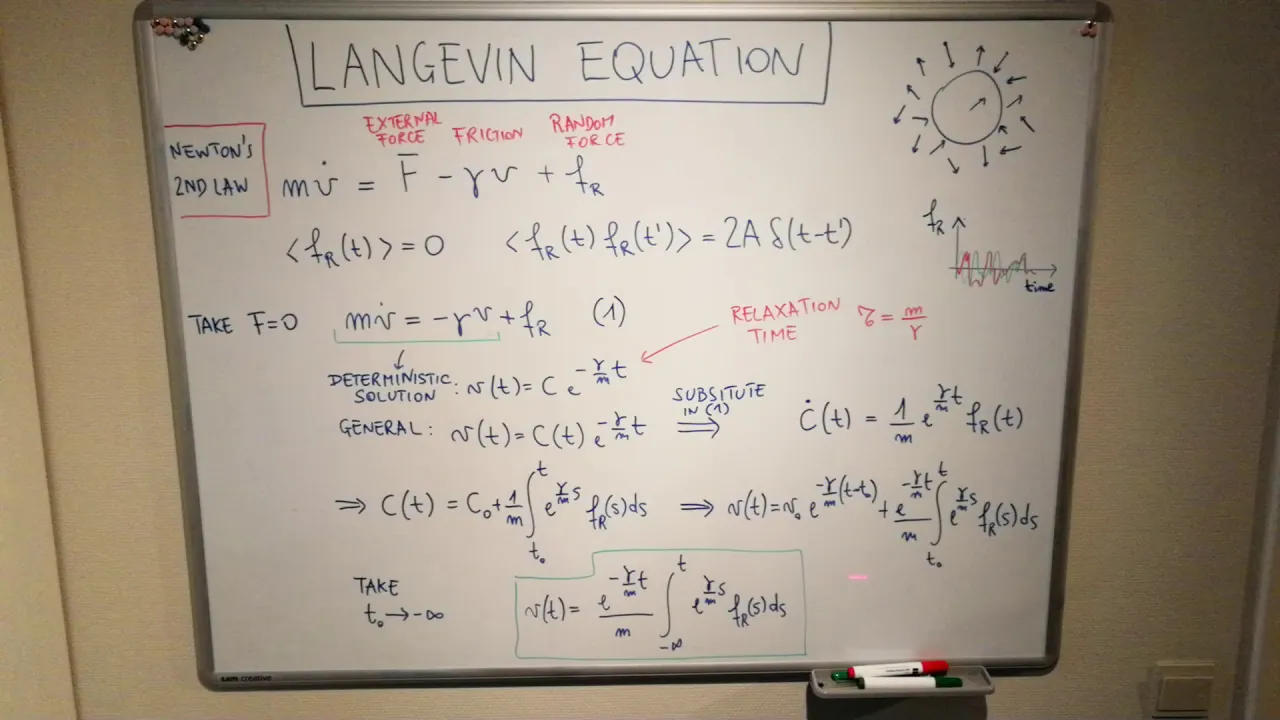 LANGEVIN EQUATION
EXTERNAL FORCE FRICTION RANDOM FORCE
NEWTON'S 2ND LAW
mv̇ = F̅ − γv + f_R
⟨f_R(t)⟩ = 0 ⟨f_R(t) f_R(t')⟩ = 2A δ(t−t')
f_R
time
TAKE F=0 mv̇ = −γv + f_R (1)
RELAXATION TIME τ = m/γ
DETERMINISTIC SOLUTION : v(t) = C e^{−(γ/m)t}
GENERAL : v(t) = C(t) e^{−(γ/m)t} SUBSITUTE IN (1) ⟹ Ċ(t) = (1/m) e^{(γ/m)t} f_R(t)
⟹ C(t) = C₀ + (1/m) ∫_{t₀}^{t} e^{(γ/m)s} f_R(s)ds ⟹ v(t) = v₀ e^{−(γ/m)(t−t₀)} + (e^{−(γ/m)t}/m) ∫_{t₀}^{t} e^{(γ/m)s} f_R(s)ds
TAKE
t₀ → −∞
v(t) = (e^{−(γ/m)t}/m) ∫_{−∞}^{t} e^{(γ/m)s} f_R(s)ds
sam creative